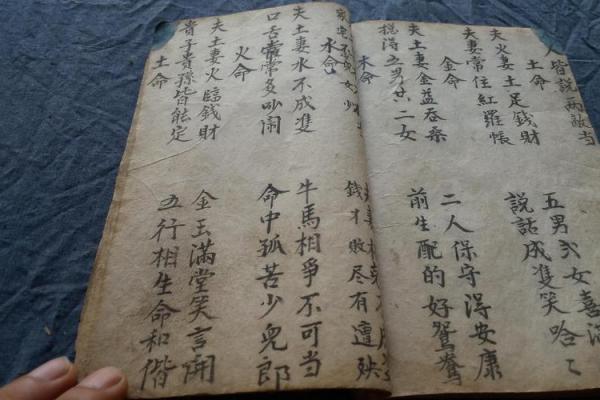 人皆說兩敵当
土命
夫火妻土足錢財 五男弍女喜滿
夫妻常住紅羅帳 說話成雙笑哈々
金命
夫土妻金益吞桑 二人保守得安康
穏得五男共二女 前生配的好鴛鴦
木命
家宅不 兒女少 錢才敗尽有遭殃
水命
夫土妻水不成雙 牛馬相爭不可当
口舌嚐常多吵闹 命中孤苦少兒郎
火命
夫土妻火臨錢財 金玉滿堂笑言開
貴子貴孫皆能定 五行相生命和偕
土命